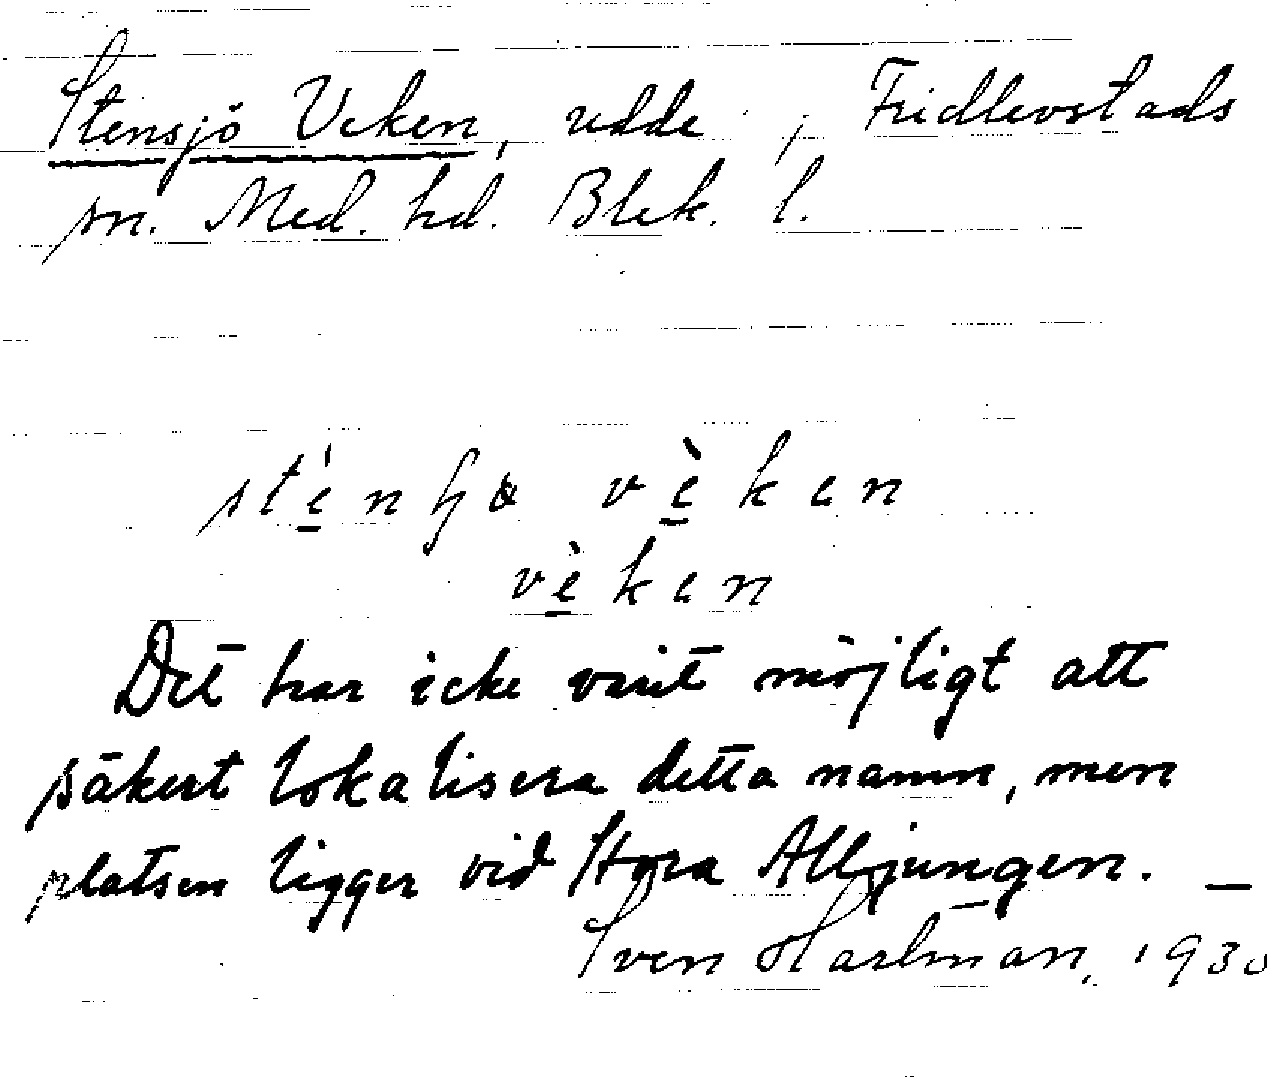 Stensjö Veken, udde, Fridlevstads
sn. Med. hd. Blek. l.
vèken
Det har icke varit möjligt att
säkert lokalisera detta namn, men
platsen ligger vid Stora Alljungen. —
Sven Harlman, 1930